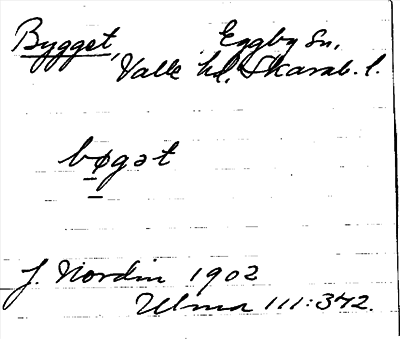 Bygget, Eggby sn,
Valle hd, Skarab. l.
bøgət
J. Nordin 1902
Ulma 111:342.